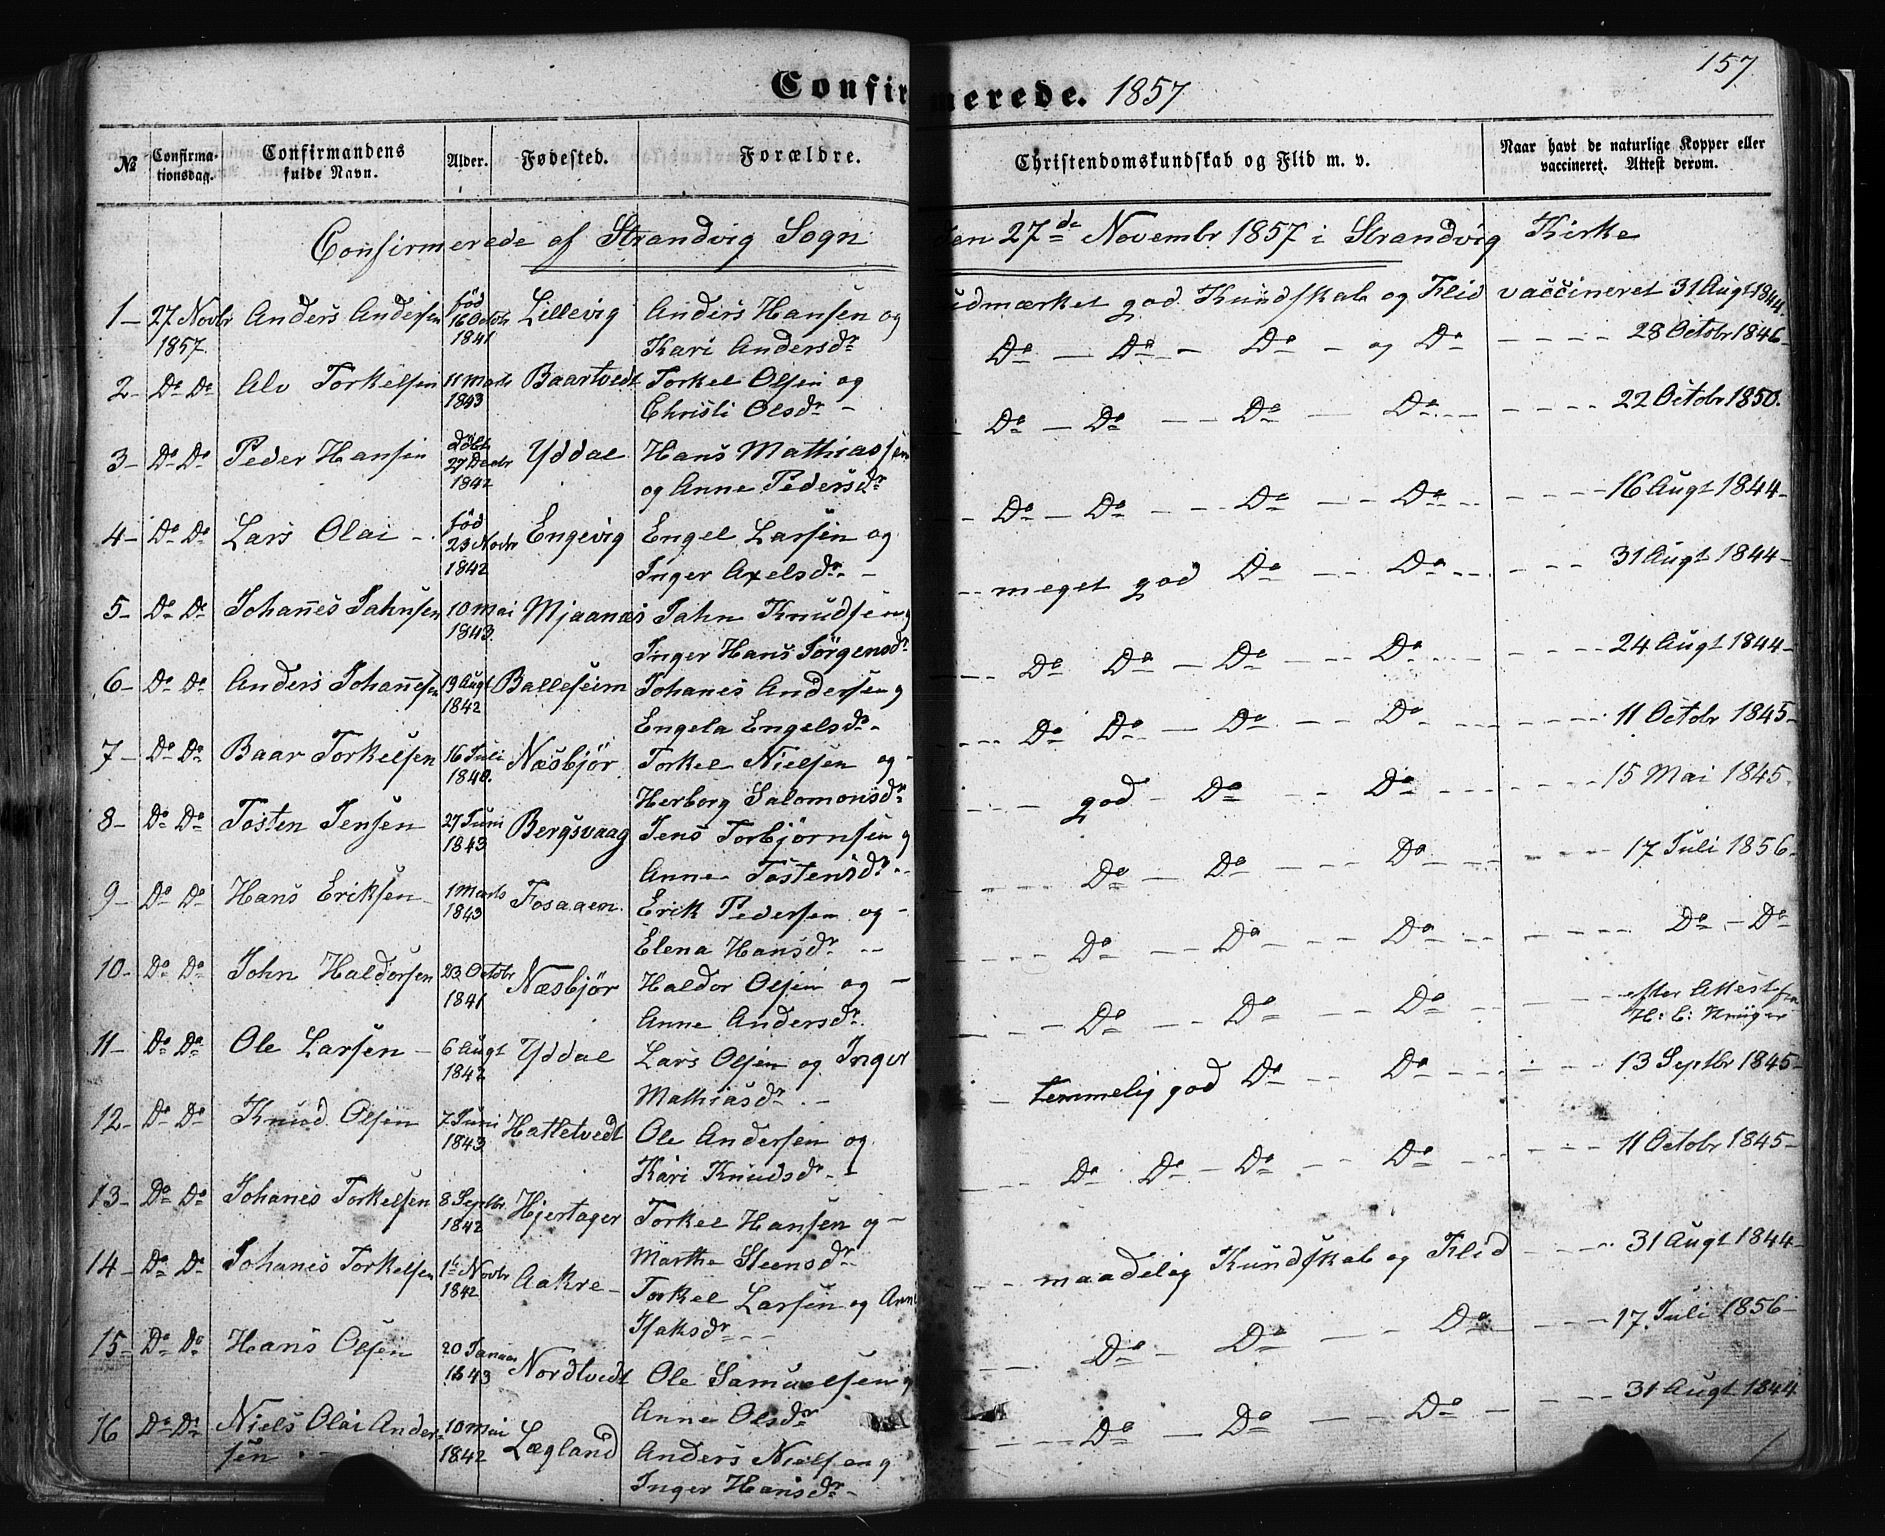 157.
Confirmerede. 1857
№ Confirma-tionsdag. Confirmandens fulde Navn. Alder. Fødested. Forældre. Christendomskundskab og Flid m. v. Naar havt de naturlige Kopper eller vaccineret. Attest derom.
Confirmerede af Strandvig Sogn den 27de Novembr 1857 i Strandvig Kirke
1 – 27 Novbr 1857. Anders Andersen fød 16 Octobr 1841 Lillevig Anders Hansen og Kari Andersdr udmærket god Kundskab og Flid vaccineret 31 Augt 1844.
2 – Do Do Alv Torkelsen 11 Marts 1843 Baartvedt Torkel Olsen og Christi Olsdr – Do – Do – Do – og Do – – – – 28 Octobr 1846 –
3 – Do Do Peder Hansen døbt 27 Decbr 1842 Yddal Hans Mathiassen og Anne Pedersdr – Do – Do – – Do – Do – – – – 22 Octobr 1850.
4 – Do Do Lars Olai – fød 23 Novbr 1842 Engevig Engel Larsen og Inger Axelsdr – – Do – Do – – Do – – Do – – – – 16 Augt 1844 –
5 – Do Do Johannes Jahnsen 10 Mai 1843. Mjaanæs Jahn Knudsen og Inger Hans Jørgensdr – – meget god Do – – Do – – – – 31 Augt 1844 –
6 – Do Do Anders Johannesen 19 Augt 1842 Balleseim Johanes Andersen og Engela Engelsdr – – – Do Do – Do – – Do – – – – 24 Augt 1844 –
7 – Do Do Baar Torkelsen 16 Juli 1840. Næsbjør Torkel Nielsen og – Herborg Salomonsdr – – Do Do – Do – – Do – – – – 11 Octobr 1845 –
8 – Do Do Tosten Jensen 27 Juni 1843 Bergsvaag Jens Torbjørnsen og Anne Tostensdr – – – god – Do – – Do – – – – 15 Mai 1845.
9 – Do Do Hans Eriksen – 1 Marts 1843 Fosaaen Erik Pedersen og – Elena Hansdr – – – – Do – Do – – Do – – – – 17 Juli 1856 –
10 – Do Do John Haldorsen 23 Octobr 1841 Næsbjør Haldor Olsen og – Anne Andersdr. – – – Do – – Do – – Do – – – – Do – Do
11 – Do Do Ole Larsen – 6 Augt 1842 Yddal Lars Olsen og Inger Mathiasdr. – – – – Do – – Do – – Do – – – – efter Attest fra H: C: Krüger
12 – Do Do Knud Olsen 7 Juni 1843 Hatletvedt Ole Andersen og Kari Knudsdr – – temmelig god Do – – Do – – – – 13 Septbr 1845 –
13 – Do Do Johanes Torkelsen 8 Septbr 1842 Hjertager Torkel Hansen og – Marthe Steensdr – – – Do Do – Do – – Do – – – – 11 Octobr 1845 –
14 – Do Do Johanes Torkelsen 14 Novbr 1842 Aakre – Torkel Larsen og Anne Isaksdr – – – – maadelig Kundskab og Flid – – – – 31 Augt 1844 –
15 – Do Do Hans Olsen 20 Januar 1843 Nordtvedt Ole Samuelsen og Anne Olsdr – – – Do – – Do – – – Do – – – – 17 Juli 1856 –
16 Do Do Niels Olai Andersen. – 10 Mai 1842 Lægland Anders Nielsen og Inger Hansdr – – – – Do – – Do – – – Do – – – 31 Augt 1844